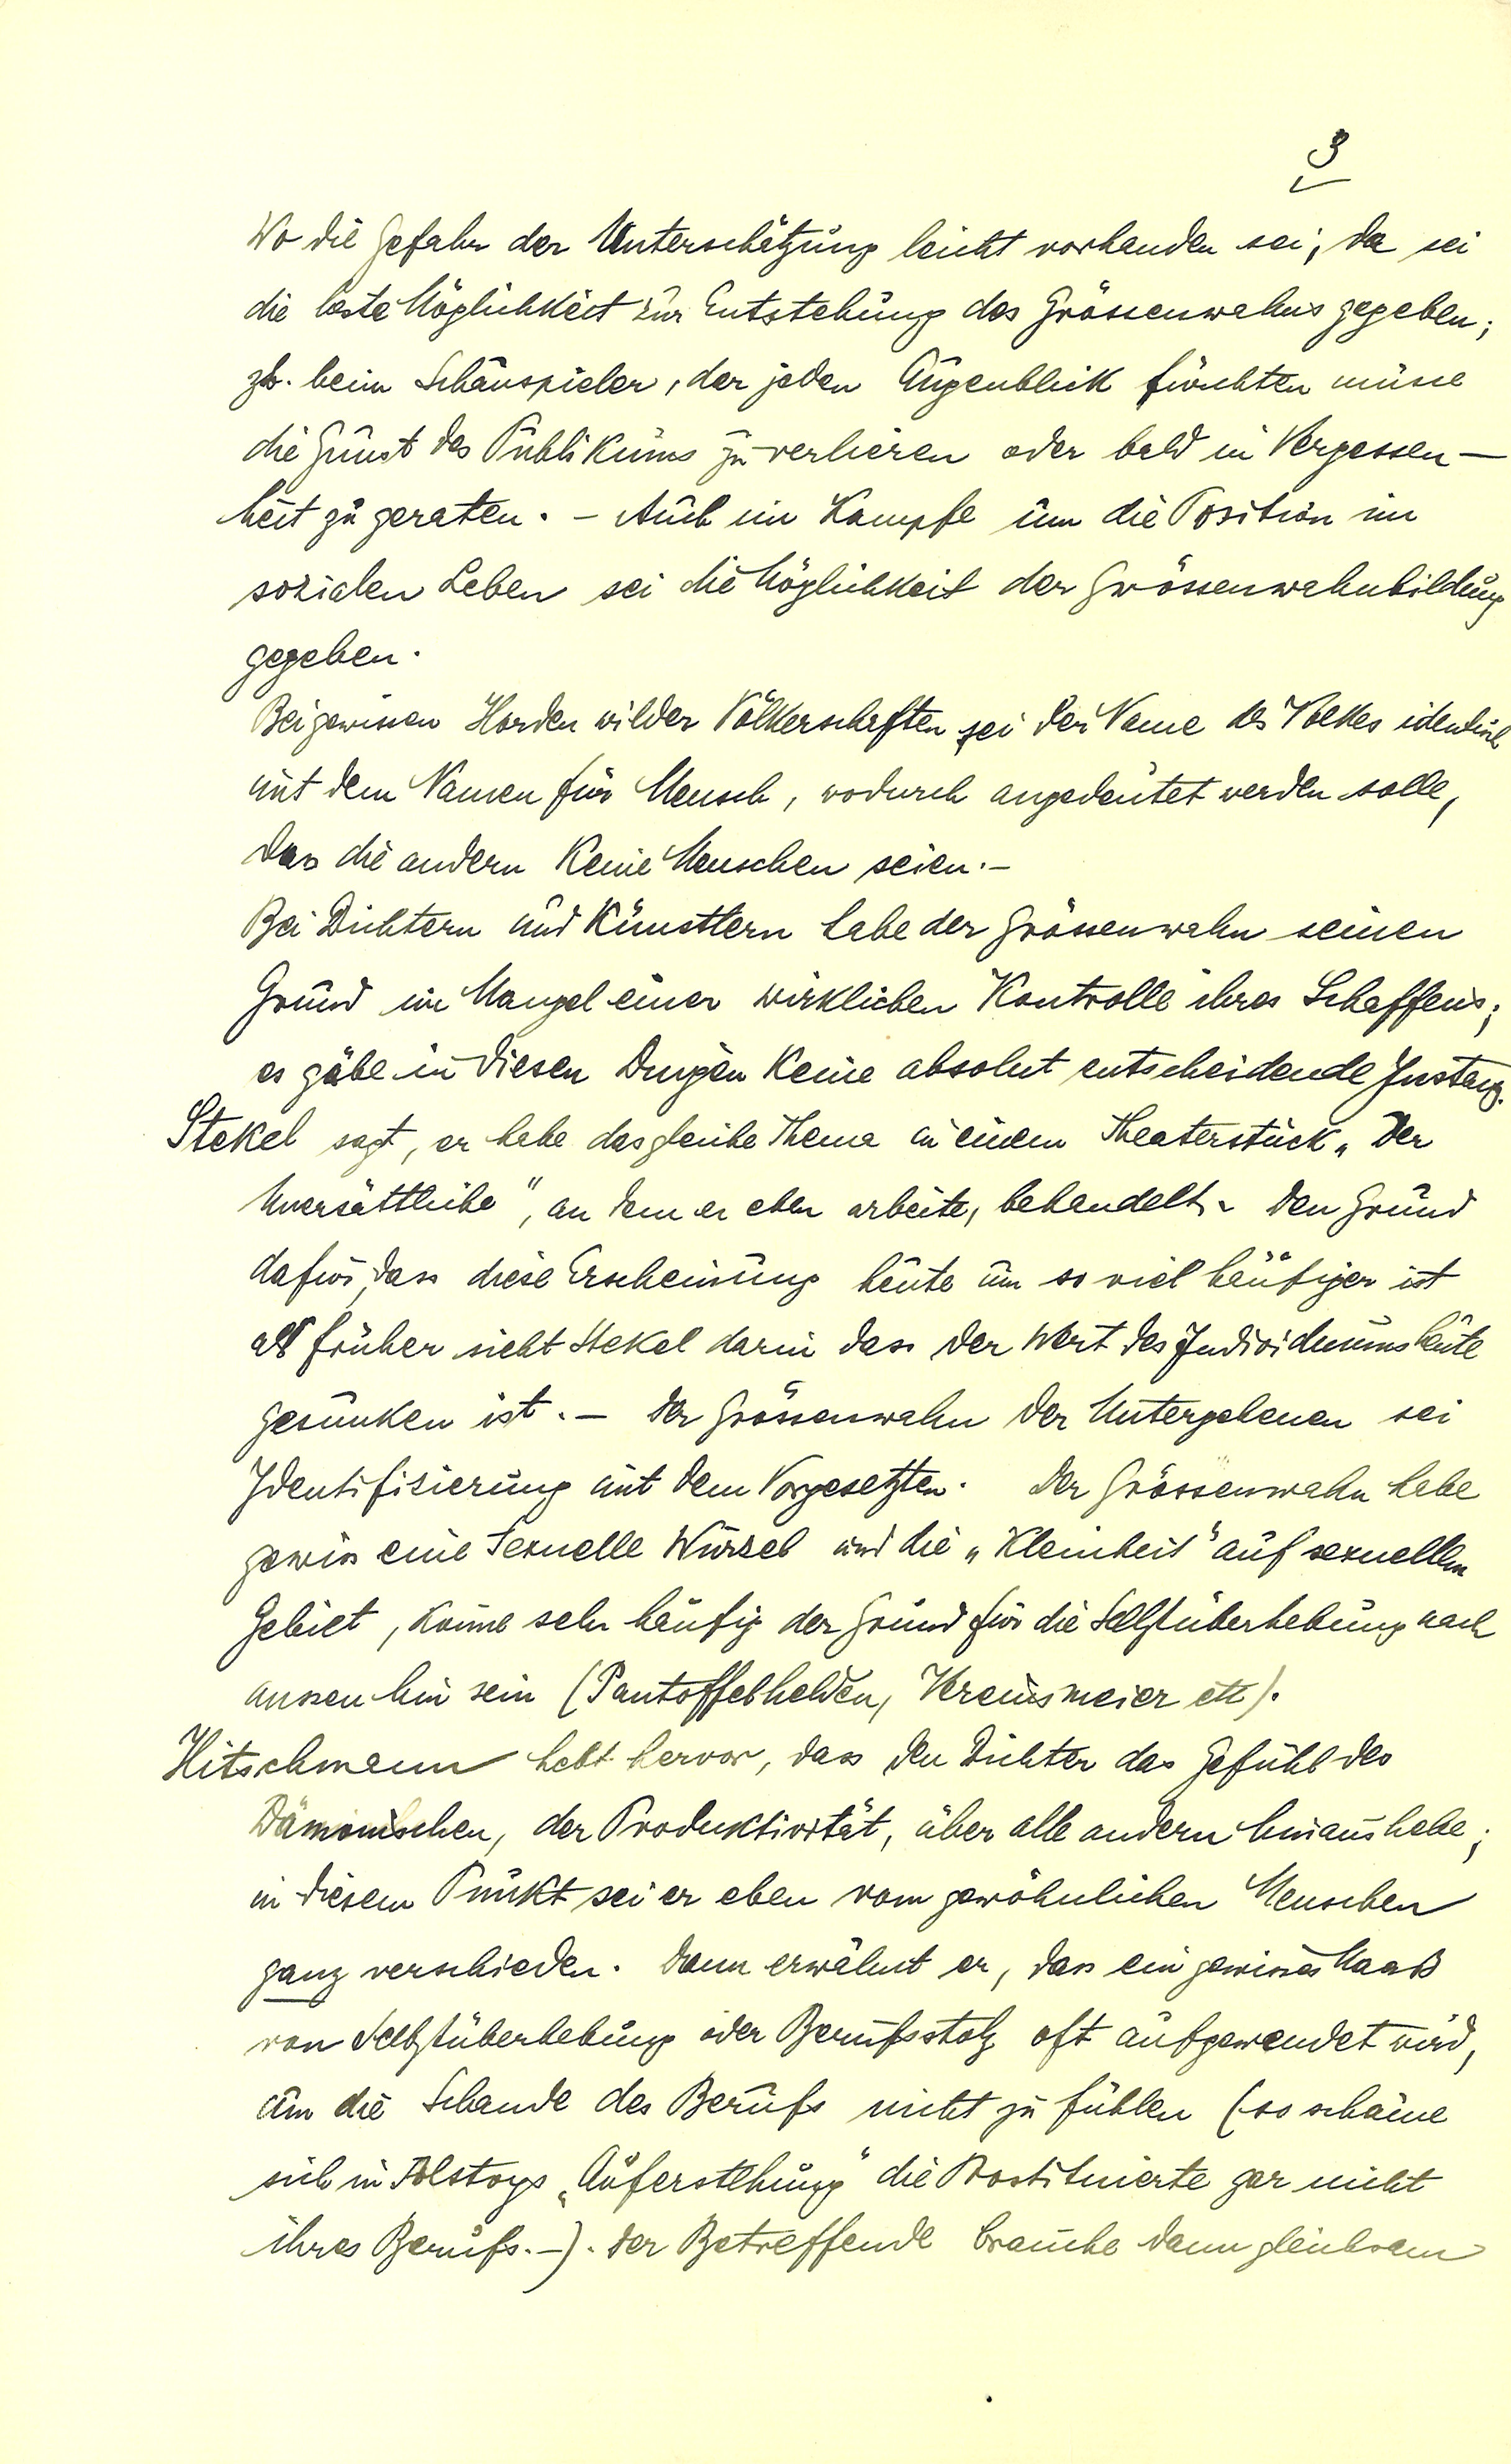 3
Wo die Gefahr der Unterschätzung leicht vorhanden sei, da sei
die beste Möglichkeit zur Entstehung des Grössenwahns gegeben;
zb. beim Schauspieler, der jeden Augenblick fürchten müsse
die Gunst des Publikums zu verlieren oder bald in Vergessen-
heit zu geraten. - Auch im Kampfe um die Position im
sozialen Leben sei die Möglichkeit der Grössenwahnbildung
gegeben.
Bei gewissen Horden wilder Völkerschaften sei der Name des Volkes identisch
mit dem Namen für Mensch, wodurch angedeutet werden solle,
dass die andern keine Menschen seien.-
Bei Dichtern und Künstlern habe der Grössenwahn seinen
Grund im Mangel einer wirklichen Kontrolle ihres Schaffens;
es gäbe in diesen Dingen keine absolut entscheidende Instanz.
Stekel sagt, er habe das gleiche Thema in einem Theaterstück „Der
Unersättliche", an dem er eben arbeite, behandelt. Den Grund
dafür, dass diese Erscheinung heute um so viel häufiger ist
als früher sieht Stekel darin dass der Wert des Individuums heute
gesunken ist. - Der Grössenwahn der Untergebenen sei
Identifizierung mit dem Vorgesetzten. Der Grössenwahn habe
gewiss eine sexuelle Wurzel und die „Kleinheit" auf sexuellem
Gebiet, könne sehr häufig der Grund für die Selbstüberhebung nach
aussen hin sein (Pantoffelhelden, Vereinsmeier etc).
Hitschmann hebt hervor, dass den Dichter das Gefühl des
Dämonischen, der Produktivität, über alle andern hinaushebe;
in diesem Punkt sei er eben vom gewöhnlichen Menschen
ganz verschieden. Dann erwähnt er, dass ein gewisses Maaß
von Selbstüberhebung oder Berufsstolz oft aufgewendet wird,
um die Schande des Berufs nicht zu fühlen (so schäme
sich in Tolstoys „Auferstehung" die Prostituierte gar nicht
ihres Berufs.-). Der Betreffende brauche dann gleichsam